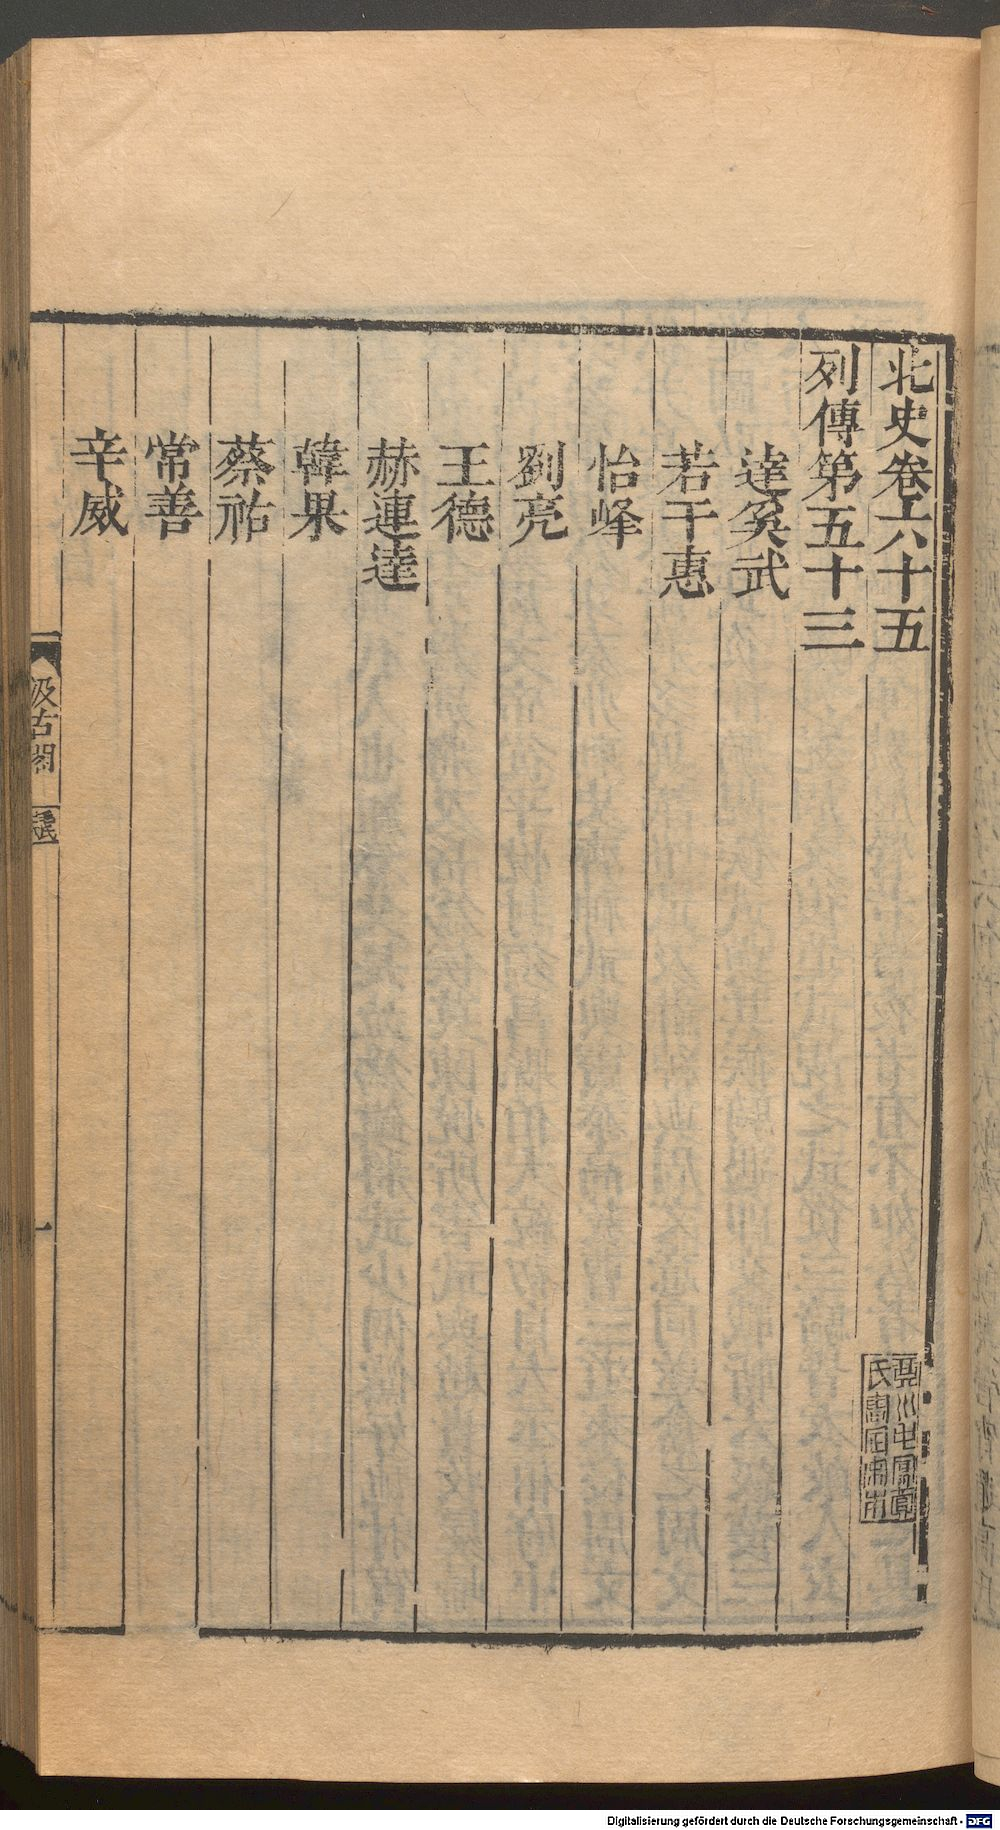 北史卷六十五
列傳第五十三
達奚武
若干惠
怡峰
劉亮
王德
赫連達
韓果
蔡祐
常善
辛威
汲古閣
毛氏
一
Digitalisierung gefördert durch die Deutsche Forschungsgemeinschaft - DFG